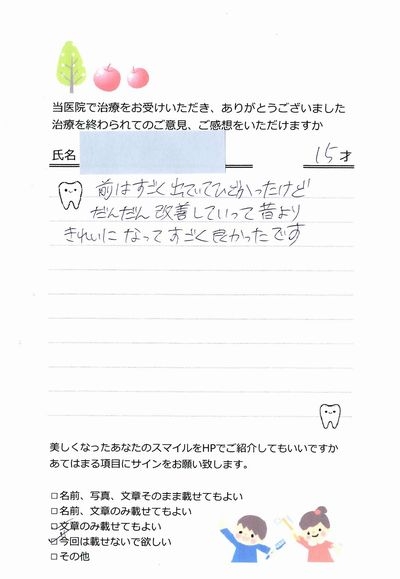 当医院で治療をお受けいただき、ありがとうございました
治療を終わられてのご意見、ご感想をいただけますか
氏名
15才
前はすごく出ていてひどかったけど
だんだん改善していって昔より
きれいになってすごく良かったです
美しくなったあなたのスマイルをHPでご紹介してもいいですか
あてはまる項目にサインをお願い致します。
□名前、写真、文章そのまま載せてもよい
□名前、文章のみ載せてもよい
□文章のみ載せてもよい
□今回は載せないで欲しい
□その他